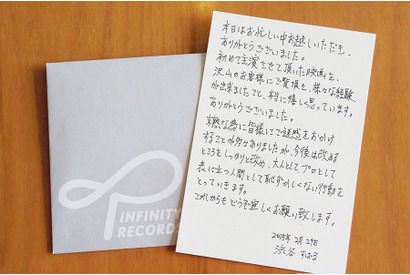 INFINITY
RECORDS
本日はお忙しい中お越しいただき、
ありがとうございました。
初めて主演させて頂いた映画を、
沢山のお客様にご覧頂き、様々な経験
が出来ましたこと、本当に嬉しく思っています。
ありがとうございました。
為に皆様にご迷惑をおかけ
することが多々ありましたが、今後は改める
ところをしっかりと改め、大人として、プロとして
表に立つ人間として恥ずかしくない行動を
とっていきます。
これからもどうぞ宜しくお願い致します。
2015年2月
渋谷すばる